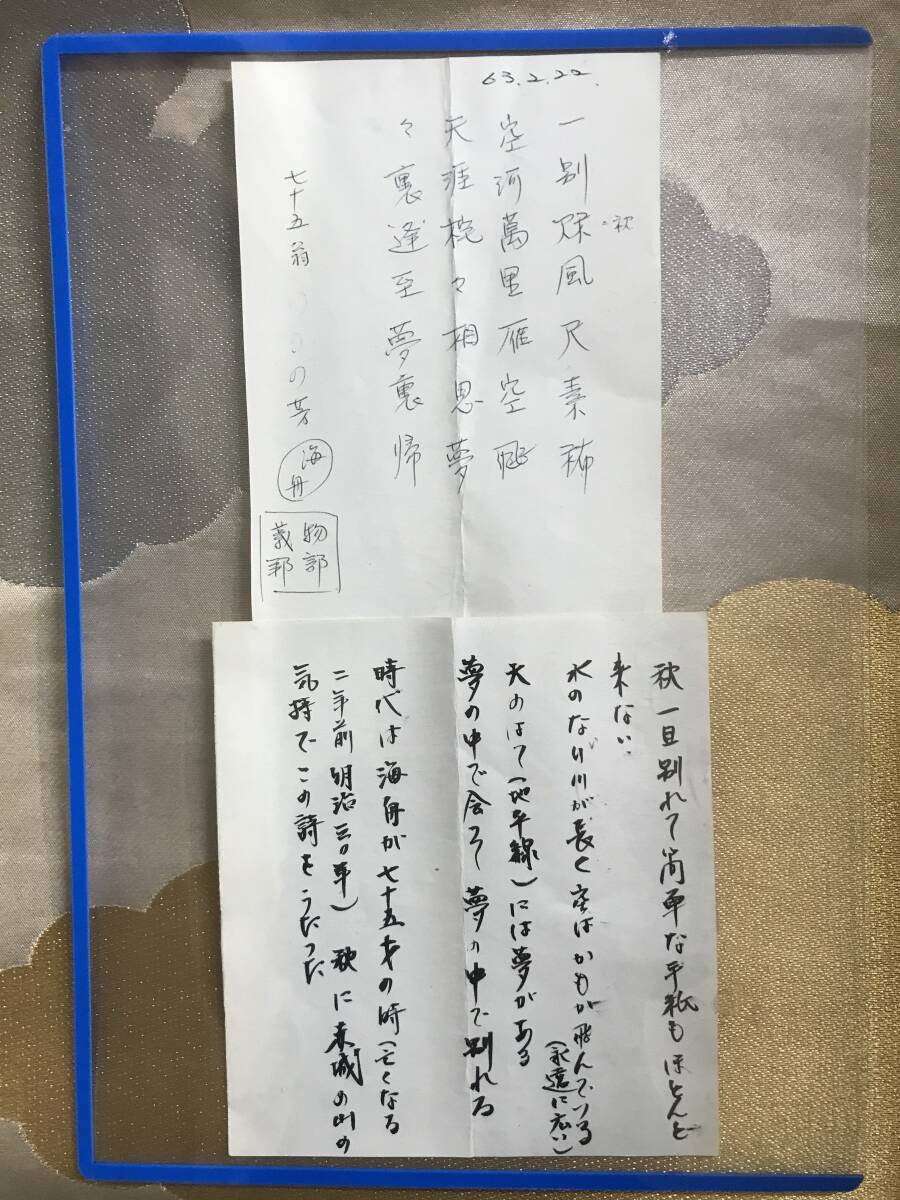 63.2.22.
一別 風尺素稀
=秋
空河萬里雁空飛
天涯 々相思夢
々裏逢至夢裏帰
七十五翁 の芳
海舟
物部
義邦
秋一旦別れて簡単な手紙もほとんど
来ない。
水のない川が長く空はかもが飛んでいる
(永遠に広い)
天のはて(地平線)には夢がある
夢の中で会って夢の中で別れる
時代は海舟が七十五才の時(亡くなる
二年前明治三〇年) 秋に赤城の山の
気持でこの詩をうたった